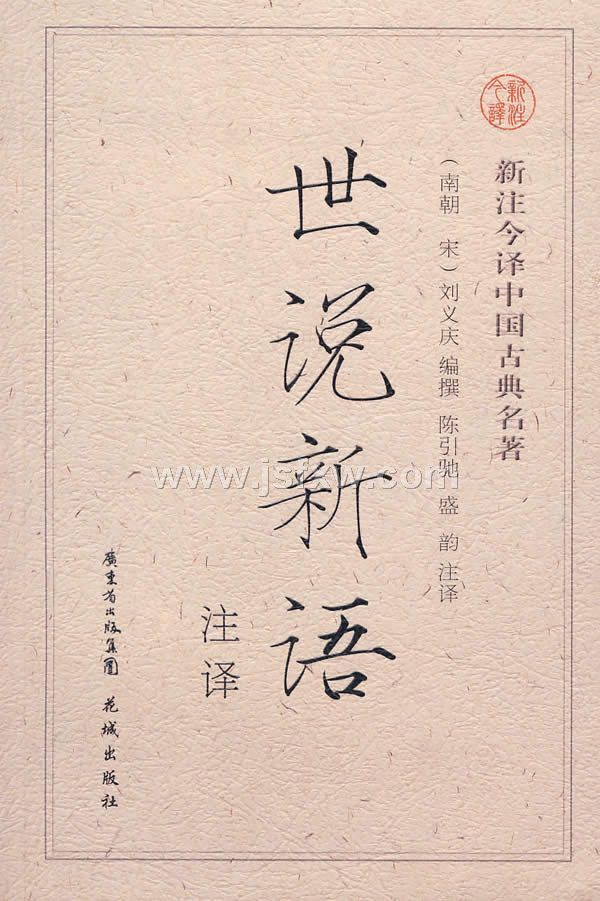 新注今译
新注今译中国古典名著
(南朝 宋)刘义庆 编撰 陈引驰 盛 韵 注译
世说新语
注译
廣東省出版集團 花城出版社
www.jsfxw.com